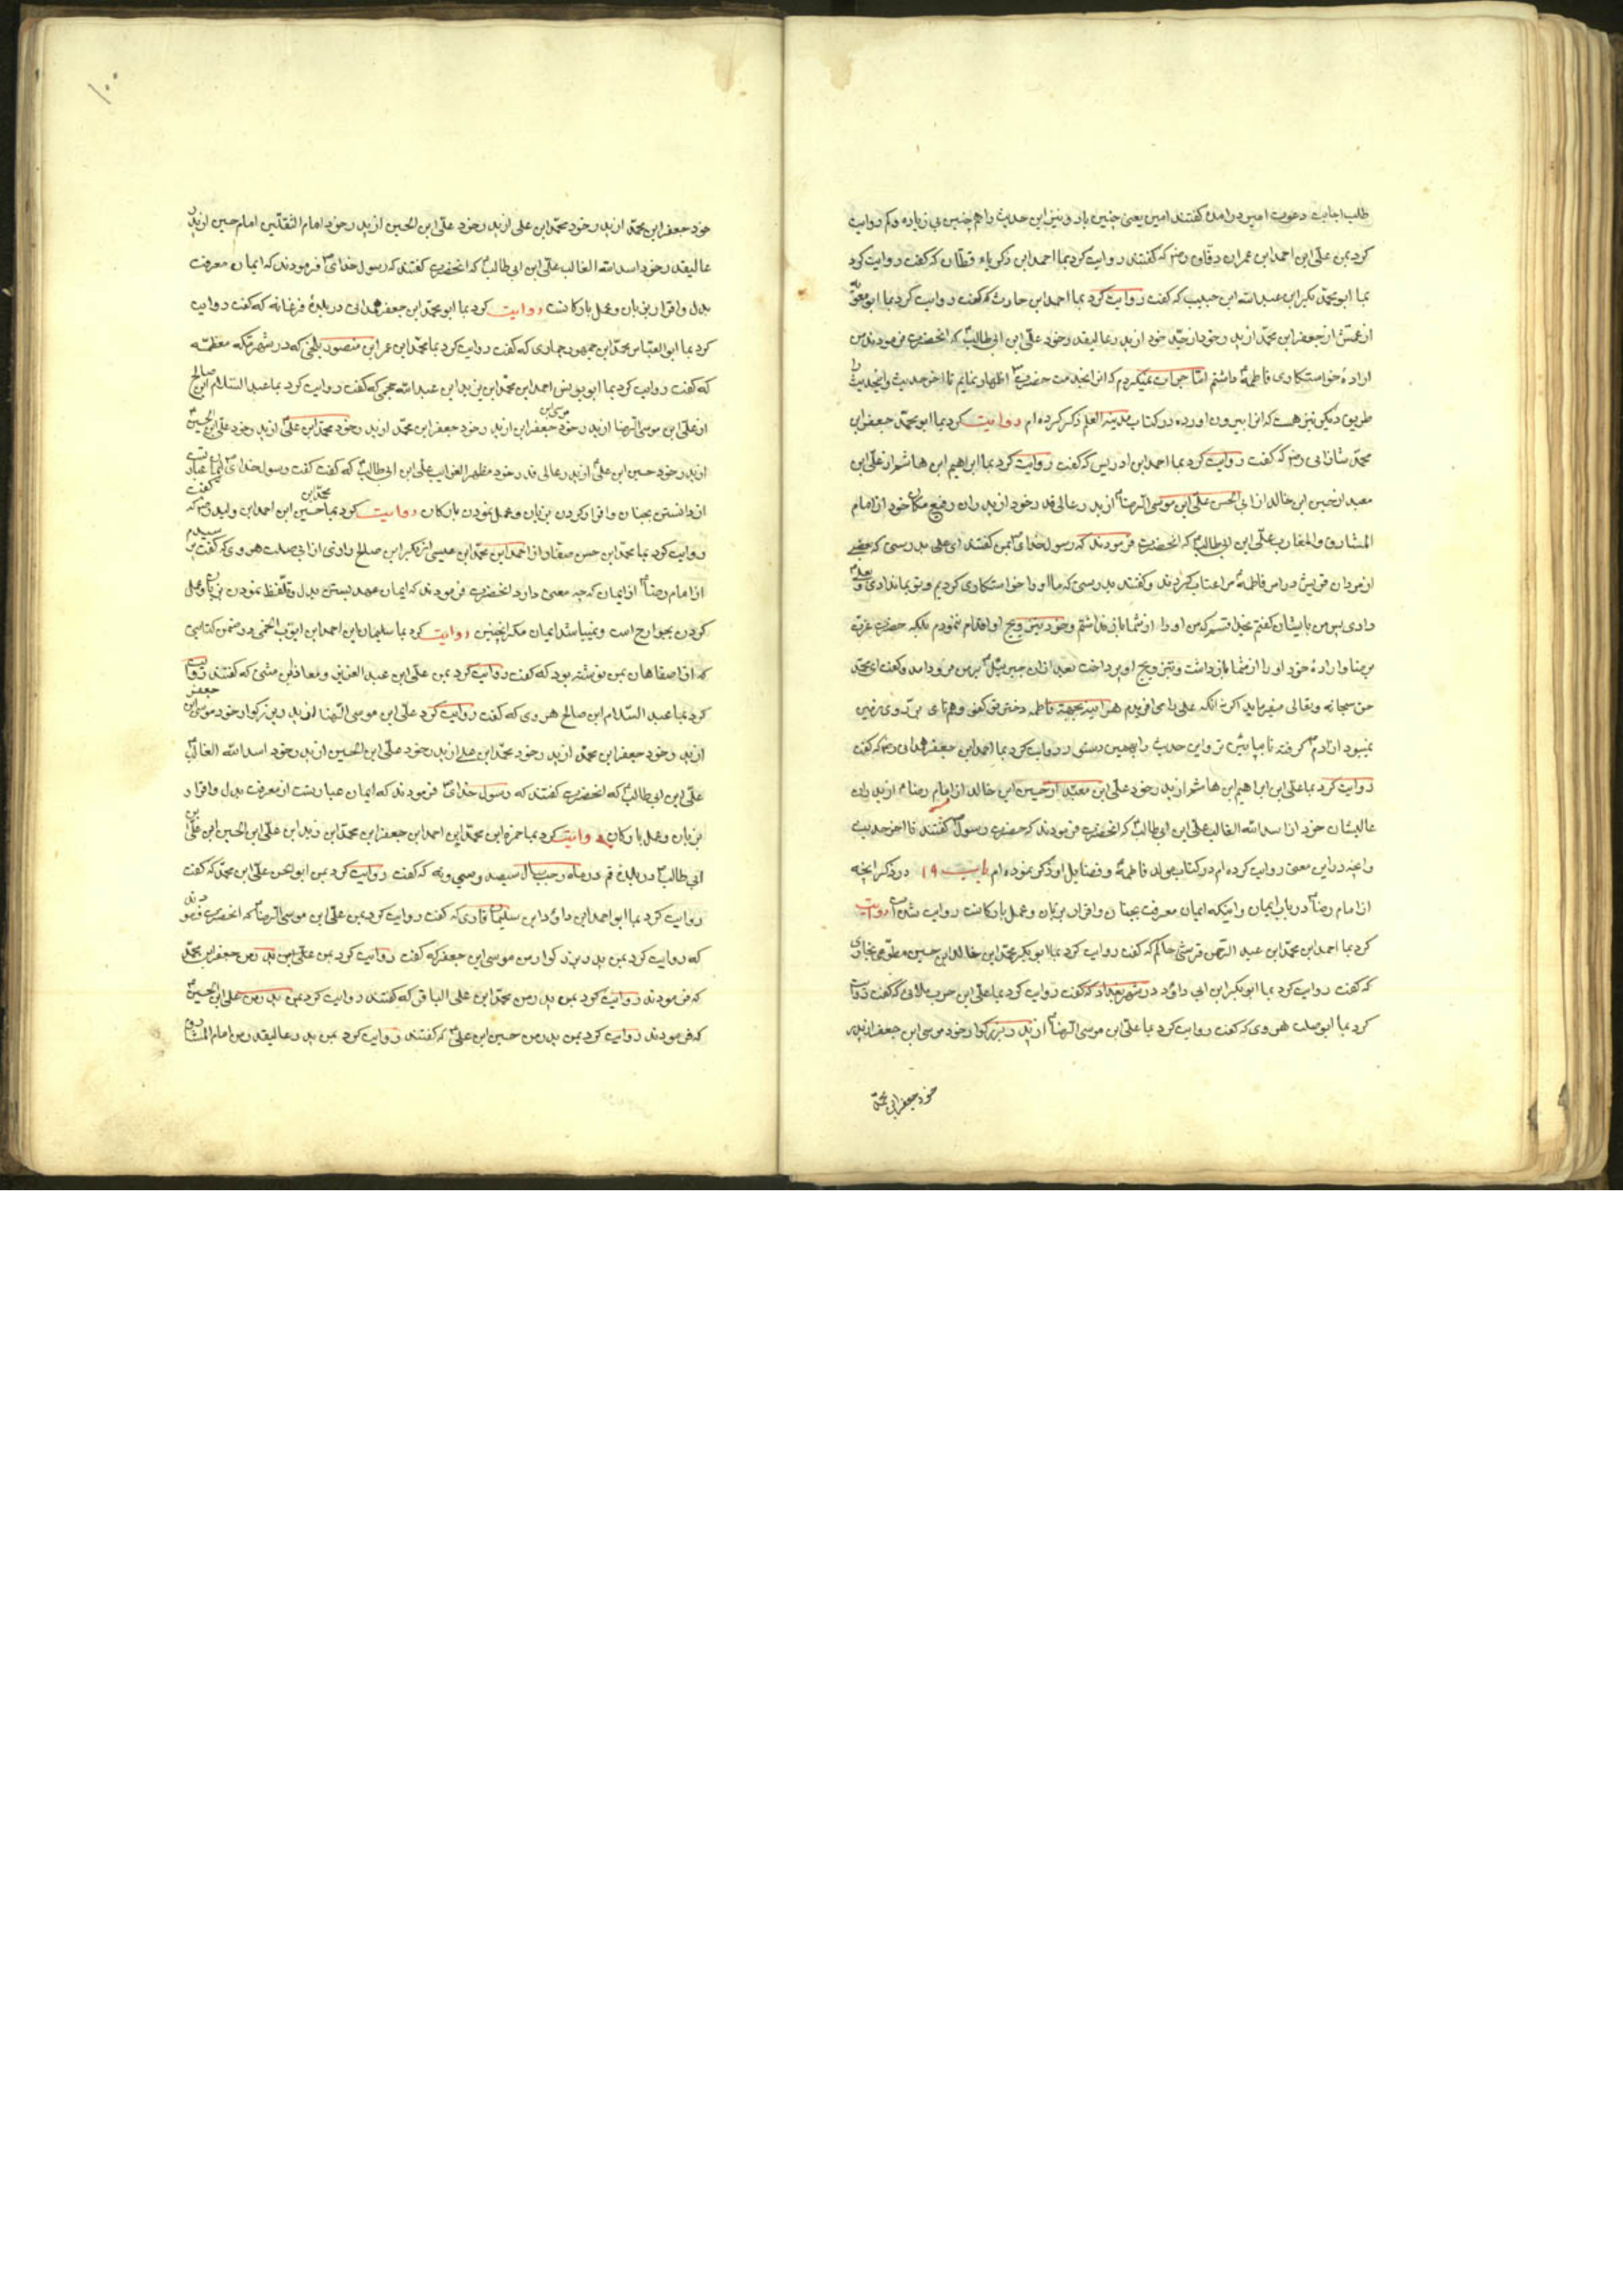 طلب اجابت دعوت امین در امدن گفتند امین یعنی چنین باد و نیز این حدیث را هم چنین بی زیاده و کم روایت
کرد بمن علی ابن احمد ابن عمران دقاق رض که گفتند روایت کرد بما احمد ابن ذکریاء قطان که گفت روایت کرد
بما ابو محمد بکر ابن عبد الله ابن حبیب که گفت روایت کرد بما احمد ابن حارث که گفت روایت کرد بما ابو معویه
از اعمش از جعفر ابن محمد از پدر خود از جد خود از پدر عالیقدر خود علی ابن ابی طالب که انحضرت فرمودند من
اراده خواستکاری فاطمه داشتم اما جرات نمیکردم که انرا بخدمت حضرت اظهار نمایم تا اخر حدیث و اینحدیث را
طریق دیکری نیز هست که انرا بیرون اورده در کتاب مدینة العلم ذکر کرده ام روایت کرد بما ابو محمد جعفر ابن
محمد شاذانی رض که گفت روایت کرد بما احمد ابن ادریس که گفت روایت کرد بما ابراهیم ابن هاشم از علی ابن
معبد از حسین ابن خالد از ابی الحسن علی ابن موسی الرضا از پدر عالی قدر خود از پدران رفیع مکان خود از امام
المشارق و المغارب علی ابن ابی طالب که انحضرت فرمودند که رسول خدای بمن گفتند ای علی بدرستی که بعضی
از مردان قریش در امر فاطمه مرا عتاب کردند و گفتند بدرستی که ما او را خواستکاری کردیم و تو بما ندادی و بعلی
دادی پس من بایشان گفتم بخدا قسم که من او را از شما باز نداشتم و خود بتزویج او اقدام ننمودم بلکه حضرت عزت
مر منا و اراده خود او را از شما باز داشت و بتزویج او پرداخت بعد از ان جبرییل بر من فرود امد و گفت ای محمد
حق سبحانه و تعالی میفرماید اکر نه انکه علی را می افریدم هر اینه بجهة فاطمه دختر تو کفو و همتای بر روی زمین
نمیبود از ادم گرفته تا بپایین تر و این حدیث را بهمین دستور روایت کرد بما احمد ابن جعفر همدانی رض که گفت
روایت کرد بما علی ابن ابراهیم ابن هاشم از پدر خود علی ابن معبد از حسین ابن خالد از امام رضا از پدران
عالیشان خود از اسد الله الغالب علی ابن ابی طالب که انحضرت فرمودند که حضرت رسول گفتند تا اخر حدیث
و انچه در این معنی روایت کرده ام در کتاب مولد فاطمه و فضایل او ذکر نموده ام باب ۱۹ در ذکر انچه
از امام رضا در باب ایمان و اینکه ایمان معرفت بجنان و اقرار بزبان و عمل بارکانست روایت شده است روایت
کرد بما احمد ابن محمد ابن عبد الرحمن قرشی حاکم که گفت روایت کرد بما ابو بکر محمد ابن خالد ابن حسین مطوعی بخاری
که گفت روایت کرد بما ابو بکر ابن ابی داود در شهر بغداد که گفت روایت کرد بما علی ابن حرب ملائی که گفت روایت
کرد بما ابو صلت هروی که گفت روایت کرد بما علی ابن موسی الرضا از پدر بزرکوار خود موسی ابن جعفر از پدر
خود جعفر ابن محمد
۱۰۰
خود جعفر ابن محمد از پدر خود محمد ابن علی از پدر خود علی ابن الحسین از پدر خود امام الثقلین امام حسین از پدر
عالیقدر خود اسد الله الغالب علی ابن ابی طالب که انحضرت گفتند که رسول خدای فرمودند که ایمان معرفت
بدل و اقرار بزبان و عمل بارکانست روایت کرد بما ابو محمد ابن جعفر همدانی در بلدهٔ فرغانه که گفت روایت
کرد بما ابو العباس محمد ابن جمهور حمادی که گفت روایت کرد بما محمد ابن عمر ابن منصور بلخی که در شهر مکه معظمه
که گفت روایت کرد بما ابو یونس احمد ابن محمد ابن یزید ابن عبد الله جمحی که گفت روایت کرد بما عبد السلام ابن صالح
از علی ابن موسی الرضا از پدر خود موسی ابن جعفر ابن از پدر خود جعفر ابن محمد از پدر خود محمد ابن علی از پدر خود علی ابن الحسین
از پدر خود حسین ابن علی از پدر عالی قدر خود مظهر الغرایب علی ابن ابی طالب که گفت گفت رسول خدای ایمان عبارتست
از دانستن بجنان و اقرار کردن بزبان و عمل نمودن بارکان روایت کرد بما حسین محمد ابن ابن احمد ابن ولید رض که گفت
روایت کرد بما محمد ابن حسن صفار از احمد ابن محمد ابن عیسی از بکر ابن صالح رازی از ابی صلت هروی که گفت پرسیدم
از امام رضا از ایمان که چه معنی دارد انحضرت فرمودند که ایمان عهد بستن بدل و تلفظ نمودن بزبان و عمل
کردن بجوارح است و نمیباشد ایمان مکر اینچنین روایت کرد بما سلیمان ابن احمد ابن ایوب لخمی در ضمن کتابتی
که از اصفاهان بمن نوشته بود که گفت روایت کرد بمن علی ابن عبد العزیز و معاذ ابن مثنی که گفتند روایت
کرد بما عبد السلام ابن صالح هروی که گفت روایت کرد علی ابن موسی الرضا از پدر بزرکوار خود موسی ابن جعفر
از پدر خود جعفر ابن محمد از پدر خود محمد ابن علی از پدر خود علی ابن الحسین از پدر خود اسد الله الغالب
علی ابن ابی طالب که انحضرت گفتند که رسول خدای فرمودند که ایمان عبارتست از معرفت بدل و اقرار
بزبان و عمل بارکان روایت کرد بما حمزه ابن محمد ابن احمد ابن جعفر ابن محمد ابن زید ابن علی ابن الحسین ابن علی بن
ابی طالب در بلدهٔ قم در ماه رجب سال سیصد و سی و نه که گفت روایت کرد بمن ابو الحسن علی ابن محمد که گفت
روایت کرد بما ابو احمد ابن داود ابن سلیمان قاری که گفت روایت کرد بمن علی ابن موسی الرضا که انحضرت فرمودند
که روایت کرد بمن پدر بزرکوار من موسی ابن جعفر که گفت روایت کرد بمن علی ابن پدر من جعفر ابن محمد
که فرمودند روایت کرد بمن پدر من محمد ابن علی الباقر که گفتند روایت کرد بمن پدر من علی ابن الحسین
که فرمودند روایت کرد بمن پدر من حسین ابن علی که گفتند روایت کرد بمن پدر عالیقدر من امام المشارق